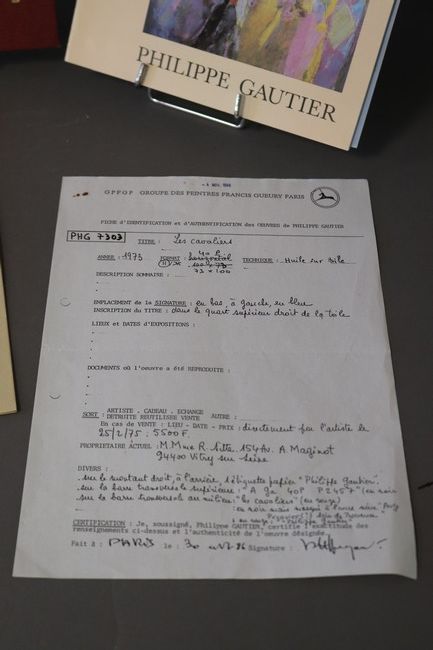 PHILIPPE GAUTIER
GPFGP GROUPE DES PEINTRES FRANCIS GUEURY PARIS
FICHE d'IDENTIFICATION et d'AUTHENTIFICATION des OEUVRES de PHILIPPE GAUTIER
PHG 7303
TITRE : Les cavaliers
ANNEE : 1973 FORMAT : horizontal 40 P TECHNIQUE : Huile sur toile
73 x 100
DESCRIPTION SOMMAIRE :
EMPLACEMENT de la SIGNATURE : en bas, à gauche, en bleu
INSCRIPTION du TITRE : dans le quart supérieur droit de la toile
LIEUX et DATES d'EXPOSITIONS :
DOCUMENTS où l'oeuvre a été REPRODUITE :
ARTISTE . CADEAU . ECHANGE
SORT : DETRUITE REUTILISEE VENTE AUTRE :
En cas de VENTE : LIEU - DATE - PRIX : directement par l'artiste le
25/2/75 : 5500F.
PROPRIETAIRE ACTUEL : M.Mme R. 154 Av. A. Maginot
94400 Vitry sur Seine
DIVERS :
. sur le montant droit, à l'arrière, étiquette papier "Philippe Gautier"
. sur la barre transversale supérieure : 40P
. sur la barre transversale au milieu : "les cavaliers" (en rouge)
"Philippe Gautier"
CERTIFICATION : Je, soussigné, Philippe GAUTIER, certifie l'exactitude des
renseignements ci-dessus et l'authenticité de l'oeuvre désignée.
Fait à : PARIS le : 30 Signature :